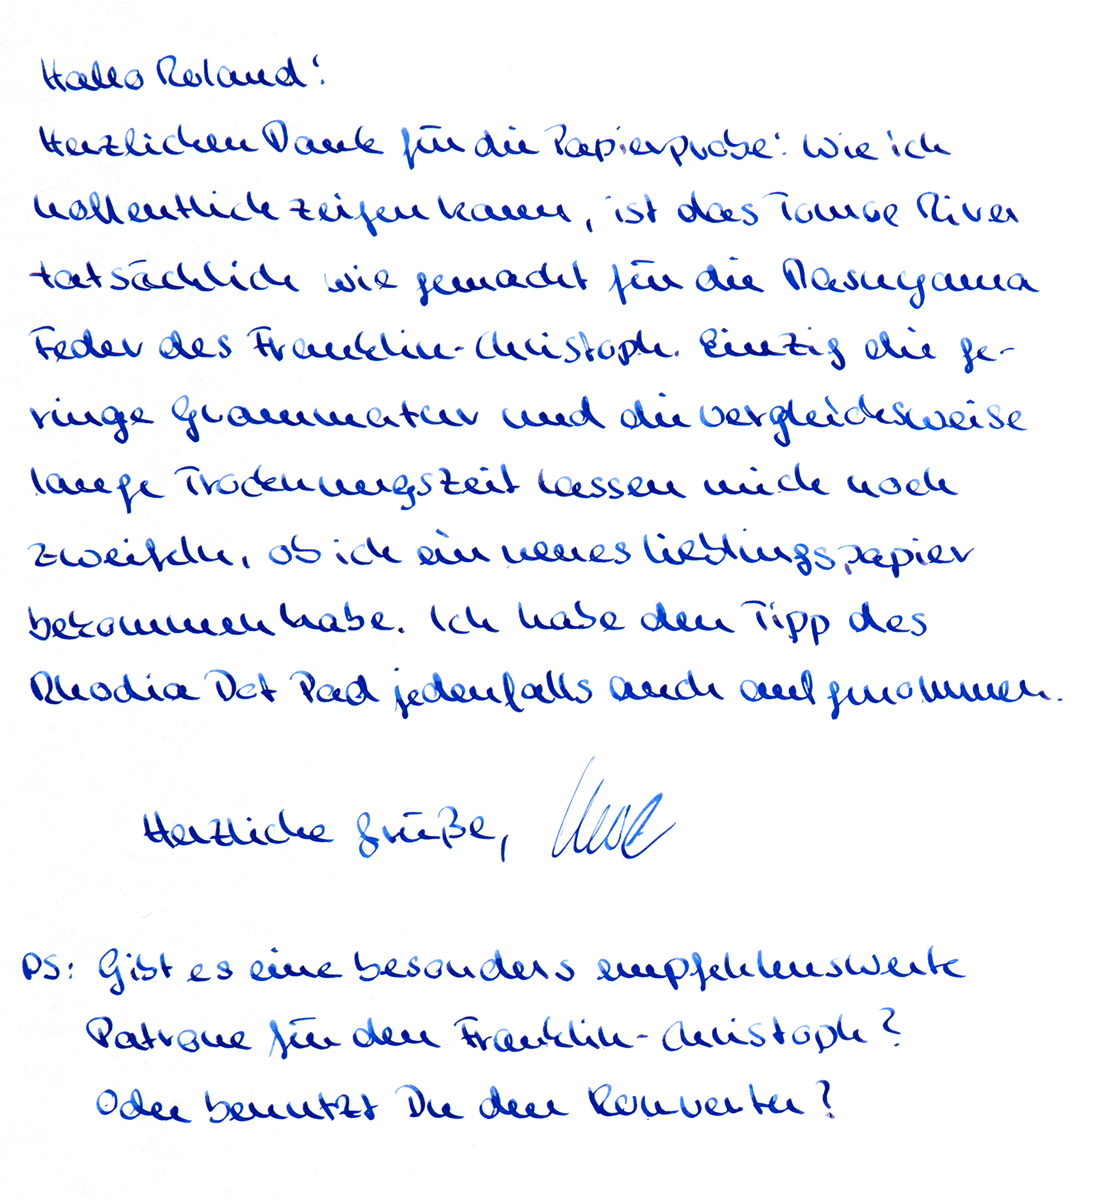 Hallo Roland!
Herzlichen Dank für die Papierprobe! Wie ich
hoffentlich zeigen kann, ist das Tomoe River
tatsächlich wie gemacht für die Masuyama
Feder des Franklin-Christoph. Einzig die ge-
ringe Grammatur und die vergleichsweise
lange Trocknungszeit lassen mich noch
zweifeln, ob ich ein neues Lieblingspapier
bekommen habe. Ich habe den Tipp des
Rhodia Dot Pad jedenfalls auch aufgenommen.
Herzliche Grüße,
PS: Gibt es eine besonders empfehlenswerte
Patrone für den Franklin-Christoph?
Oder benutzt Du den Konverter?